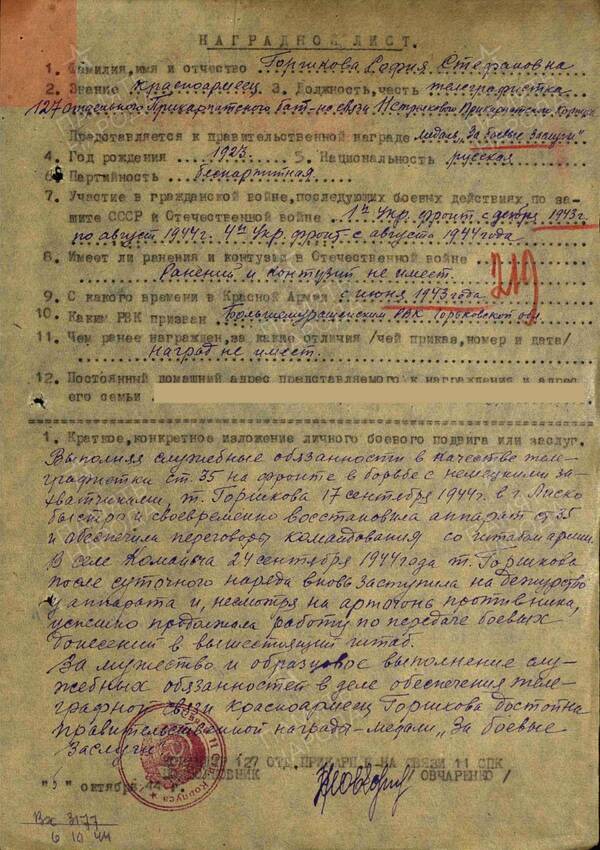 НАГРАДНОЙ ЛИСТ.
1. Фамилия, имя и отчество Горшкова София Степановна
2. Звание Красноармеец 3. Должность, часть телеграфистка
127 отдельного Прикарпатского бат-на связи 11 Стрелкового Прикарпатского Корпуса
Представляется к правительственной награде медаль "За боевые заслуги"
4. Год рождения 1923 5. Национальность русская
6. Партийность беспартитная
7. Участие в гражданской войне, последующих боевых действиях по за-
щите СССР и Отечественной войне 1й Укр. фронт с декабря 1943 г.
по август 1944 г. 4й Укр. фронт с августа 1944 года
8. Имеет ли ранения и контузии в Отечественной войне
Ранений и контузий не имеет.
219
9. С какого времени в Красной Армии с июня 1943 года
10. Каким РВК призван Большемурашкинским РВК Горьковской обл.
11. Чем ранее награжден, за какие отличия /чей приказ, номер и дата/
Наград не имеет.
12. Постоянный домашний адрес представляемого к награждению и адрес
его семьи
1. Краткое, конкретное изложение личного боевого подвига или заслуг.
Выполняя служебные обязанности в качестве теле-
графистки ст. 35 на фронте в борьбе с немецкими за-
хватчиками, т. Горшкова 17 сентября 1944 г. в г. Лиско
быстро и своевременно восстановила аппарат ст 35
и обеспечила переговоры командования со штабом армии.
В селе Команьча 24 сентября 1944 года т. Горшкова
после суточного наряда вновь заступила на дежурство
у аппарата и, несмотря на артогонь противника,
успешно продолжала работу по передаче боевых
донесений в вышестоящий штаб.
За мужество и образцовое выполнение слу-
жебных обязанностей в деле обеспечения теле-
графной связи красноармеец Горшкова достойна
правительственной награды - медали "За боевые
Заслуги"
127 ОТД. ПРИКАРП. Б-НА СВЯЗИ 11 СПК
ПОДПОЛКОВНИК ОВЧАРЕНКО /
"5" октября 44 г.
Корпуса
Вх 3177
6 10 44